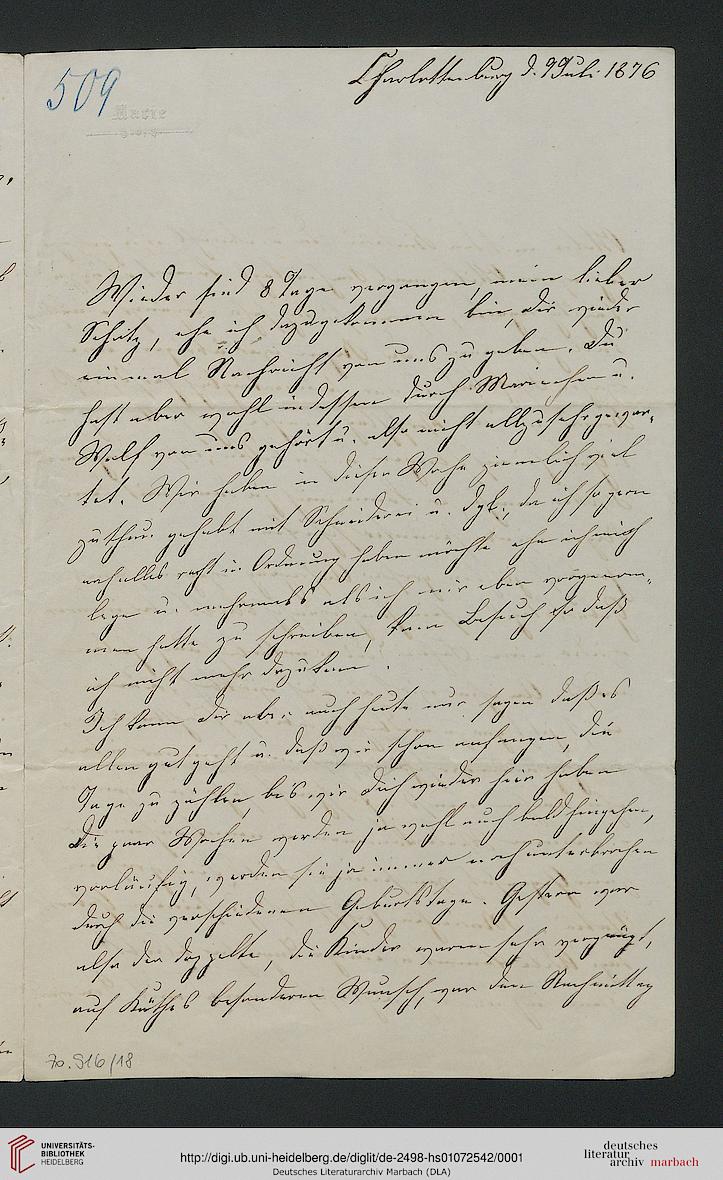 509
Marie
Charlottenburg d. 9 Juli 1876
Wieder sind 8 Tage vergangen, mein lieber
Schatz, ehe ich dazugekommen bin, Dir wieder
einmal Nachricht von uns zu geben. Du
hast aber wohl indessen durch Mariechen u.
Wolf von uns gehört u. also nicht allzusehr gewar-
tet. Wir haben in dieser Woche ziemlich viel
zu thun gehabt mit Schneiderei u. dgl., da ich so gern
noch alles recht in Ordnung haben möchte ehe ich mich
lege u. mehrmals als ich mir eben vorgenom-
men hatte zu schreiben, kam Besuch so daß
ich nicht mehr dazu kam.
Ich kann Dir aber auch heute nur sagen daß es
allen gut geht u. daß wir schon anfangen, die
Tage zu zählen bis wir Dich wieder hier haben
Die paar Wochen werden ja wohl auch bald hingehen,
vorläufig, werden sie ja immer noch unterbrochen
durch die verschiedenen Geburtstage. Gestern war
also der doppelte, die Kinder waren sehr vergnügt,
auf Käthes besonderen Wunsch, war den Nachmittag
70.916/18
UNIVERSITÄTS-
BIBLIOTHEK
HEIDELBERG
http://digi.ub.uni-heidelberg.de/diglit/de-2498-hs01072542/0001
Deutsches Literaturarchiv Marbach (DLA)
deutsches
literatur
archiv marbach